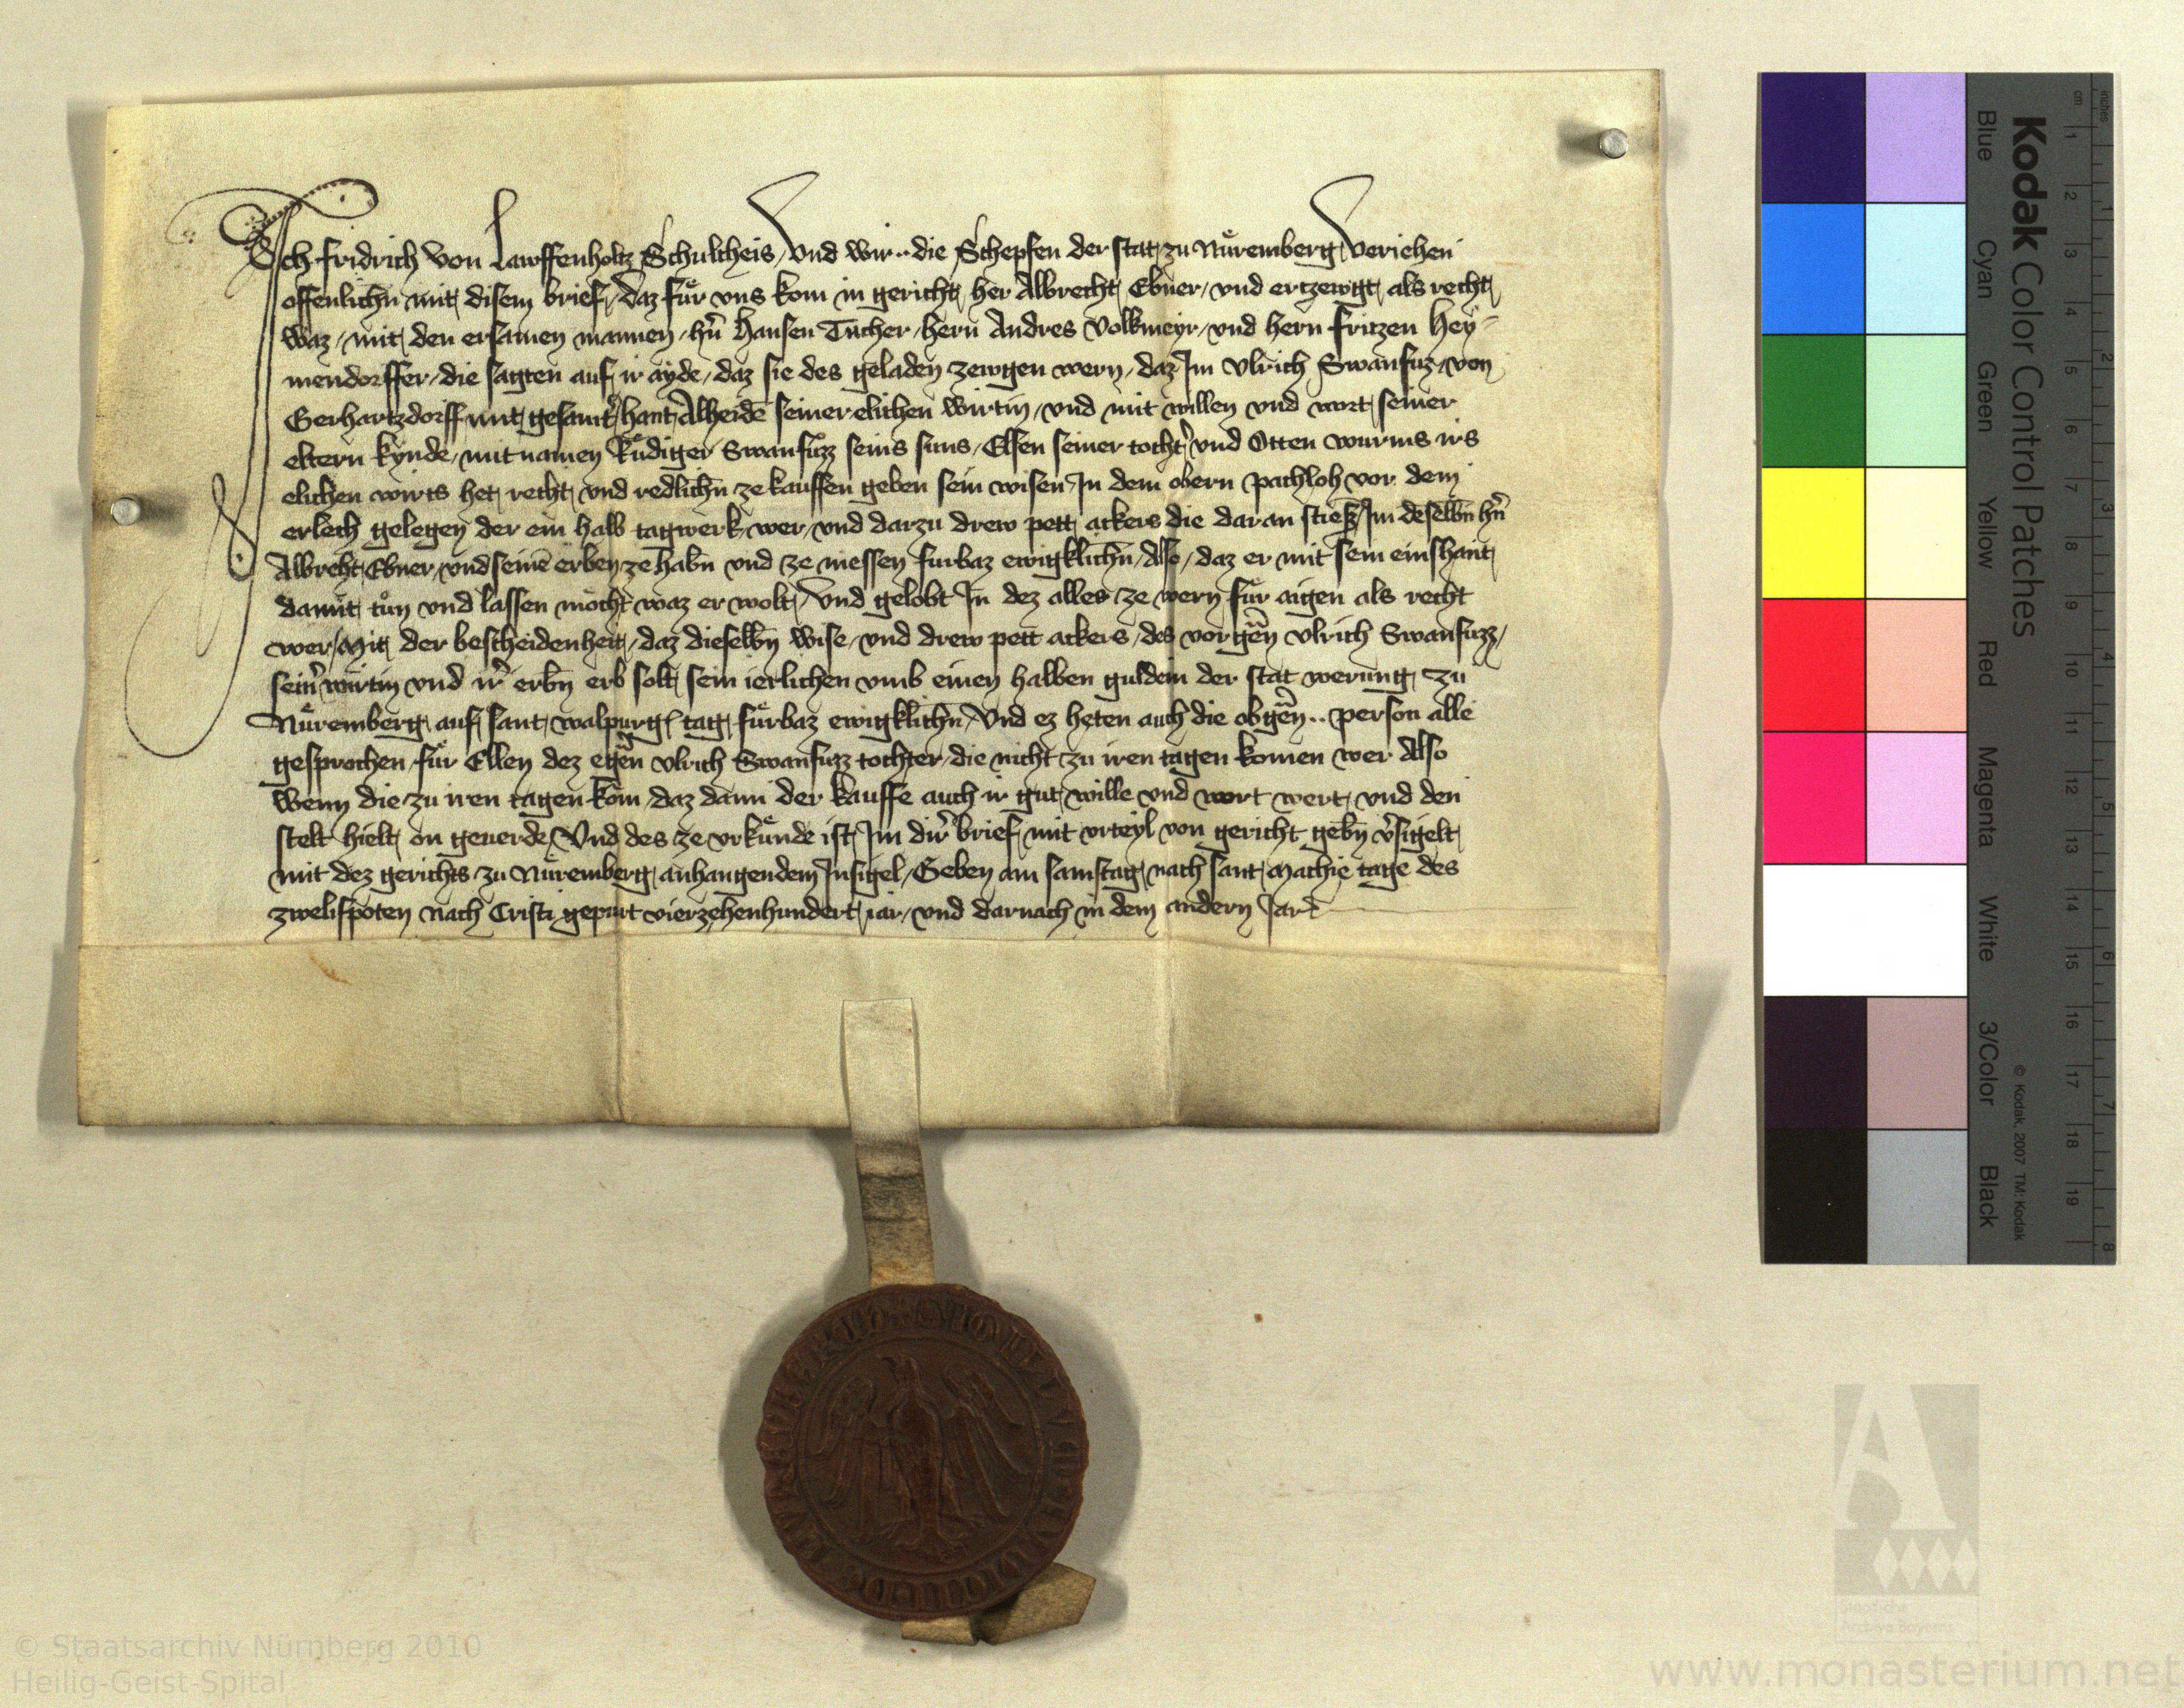 Ich Fridrich von Lawffenholtz Schultheis / vnd wir .. die Schepfen der stat zu Nuͤremberg veriehen
offenlichn̄ mit disem brief / daz fuͤr vns kom in gericht her Albrecht Ebner / vnd ertzewgt als recht
waz / mit den ersamen mannen / hn̄ Hansen Tucher / hern Andres Volkmeyr / vnd hern Fritzen Hey-
mendorffer / die sagten auf ir ayde / daz sie des geladen zewgen wern / daz Im Vlrich Swanfuz / von
Gerhartzdorff mit gesamt' hant Alheidē seiner elichen wirtin / vnd mit willen vnd wort seiner
eltern kynde / mit namen Ruͤdiger Swanfuzz seins suns / Elsen seiner tocht' vnd Otten wurms irs
elichen wirts het recht vnd redlichn̄ ze kauffen geben sein wisen In dem obern pachloh vor dem
erlech gelegen der ein halb tagwerk wer / vnd darzu drew pett ackers die daran stiesz Im deselbn̄ hn̄
Albreht Ebner / vnd seinē erben ze habn̄ vnd ze niessen furbaz ewigklichn̄ / Also / daz er mit sein einshant
damit tuͤn vnd lassen moͤcht waz er wolt / Vnd gelobt In dez alles ze wern fuͤr aigen als recht
wer / Mit der bescheidenheit / daz dieselbn̄ wise / vnd drew pett ackers / des vorgēn Vlrich Swanfuzz /
sein' wirtin vnd ir' erbn̄ erb solt sein ierlichen vmb einen halben guldein der stat werung zu
Nuͤremberg auf sant walpurg tag fuͤrbaz ewigklichn̄ / Vnd ez heten auch die obgēn .. person alle
gesprochen / fuͤr Ellen dez egēn Vlrich Swanfuzz tochter / die nicht zu iren tagen komen wer Also
Wenn die zu iren tagen kom / daz dann der kauffe auch ir gut wille vnd wort wert / vnd den
stelt hielt on geuerde / Vnd des ze vrkuͤnde ist Im dir' brief mit vrteyl von gericht gebn̄ v'sigelt
mit dez gerichts zu Nuͤremberg anhangendem Insigel / Geben am samstag nach sant Mathie tage des
zwelifpoten nach Cristi gepurt vierzehenhundert iar / vnd darnach in dem andern Jare
Kodak Color Control Patches
Blue Cyan Green Yellow Red Magenta White 3/Color Black
© Kodak, 2007 TM: Kodak
inches 1 2 3 4 5 6 7 8
cm 1 2 3 4 5 6 7 8 9 10 11 12 13 14 15 16 17 18 19
© Staatsarchiv Nürnberg 2010
Heilig-Geist-Spital
www.monasterium.net